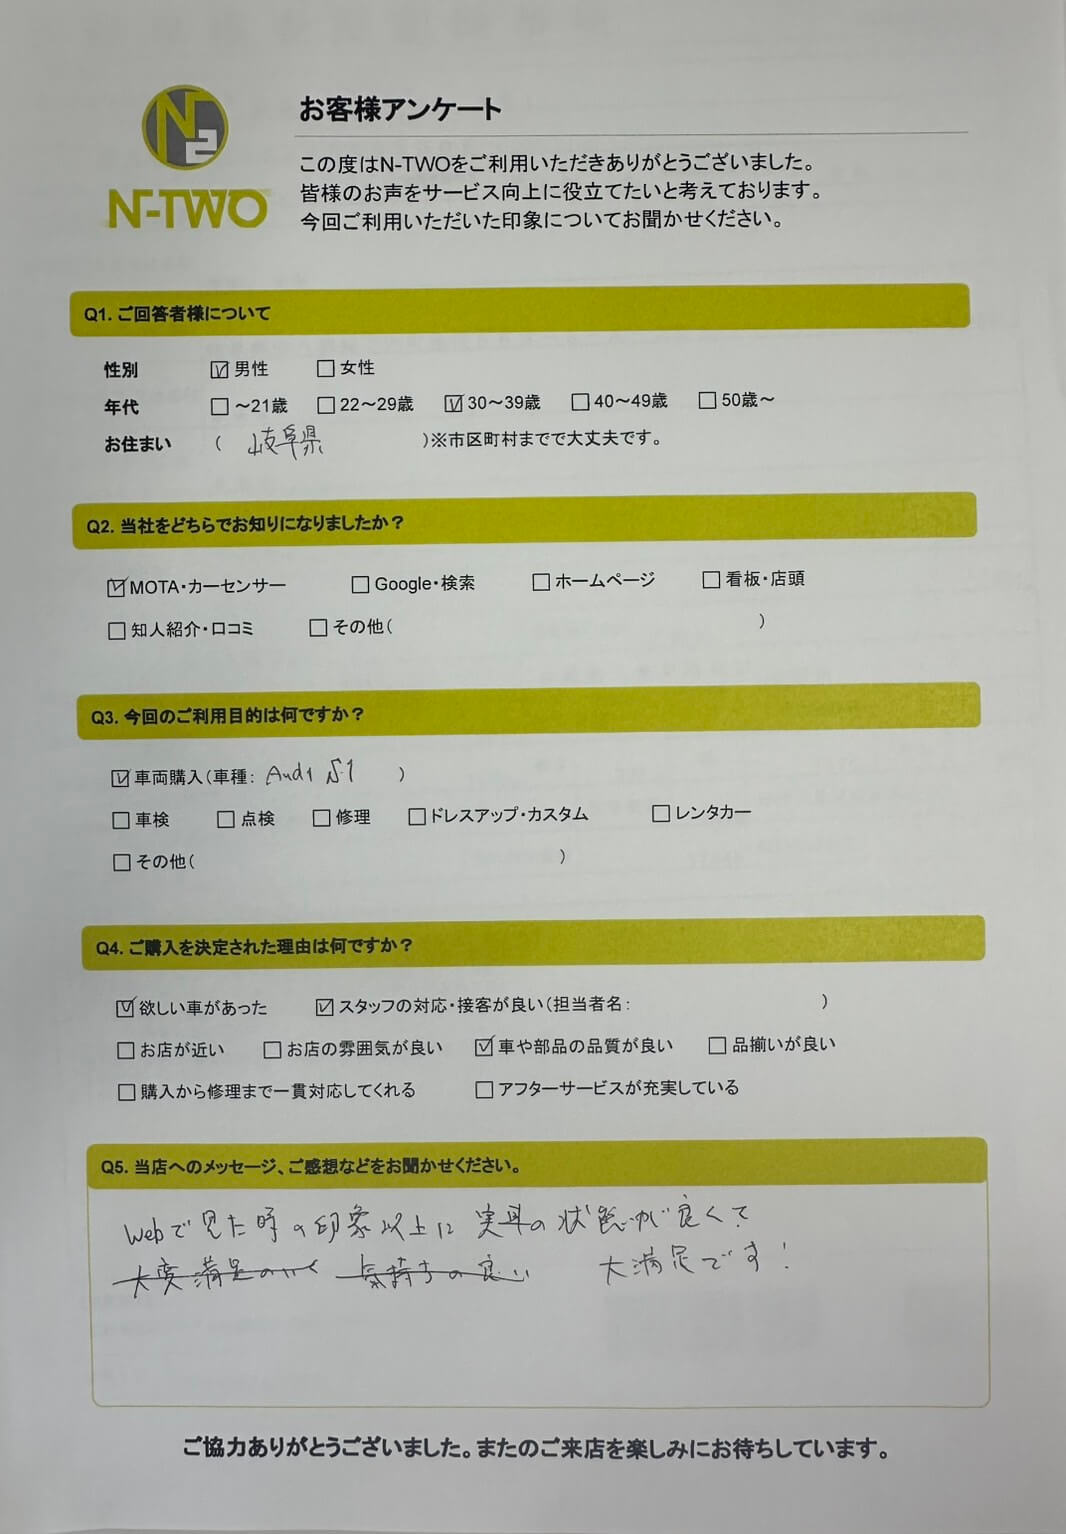 N2
N-TWO
お客様アンケート
この度はN-TWOをご利用いただきありがとうございました。
皆様のお声をサービス向上に役立てたいと考えております。
今回ご利用いただいた印象についてお聞かせください。
Q1. ご回答者様について
性別 ☑男性 □女性
年代 □～21歳 □22～29歳 ☑30～39歳 □40～49歳 □50歳～
お住まい （ 岐阜県 ）※市区町村までで大丈夫です。
Q2. 当社をどちらでお知りになりましたか？
☑MOTA・カーセンサー □Google・検索 □ホームページ □看板・店頭
□知人紹介・口コミ □その他（ ）
Q3. 今回のご利用目的は何ですか？
☑車両購入（車種： Audi S1 ）
□車検 □点検 □修理 □ドレスアップ・カスタム □レンタカー
□その他（ ）
Q4. ご購入を決定された理由は何ですか？
☑欲しい車があった ☑スタッフの対応・接客が良い（担当者名： ）
□お店が近い □お店の雰囲気が良い ☑車や部品の品質が良い □品揃いが良い
□購入から修理まで一貫対応してくれる □アフターサービスが充実している
Q5. 当店へのメッセージ、ご感想などをお聞かせください。
Webで見た時の印象以上に実車の状態が良くて
大変満足のいく 気持ちの良い 大満足です！
ご協力ありがとうございました。またのご来店を楽しみにお待ちしています。